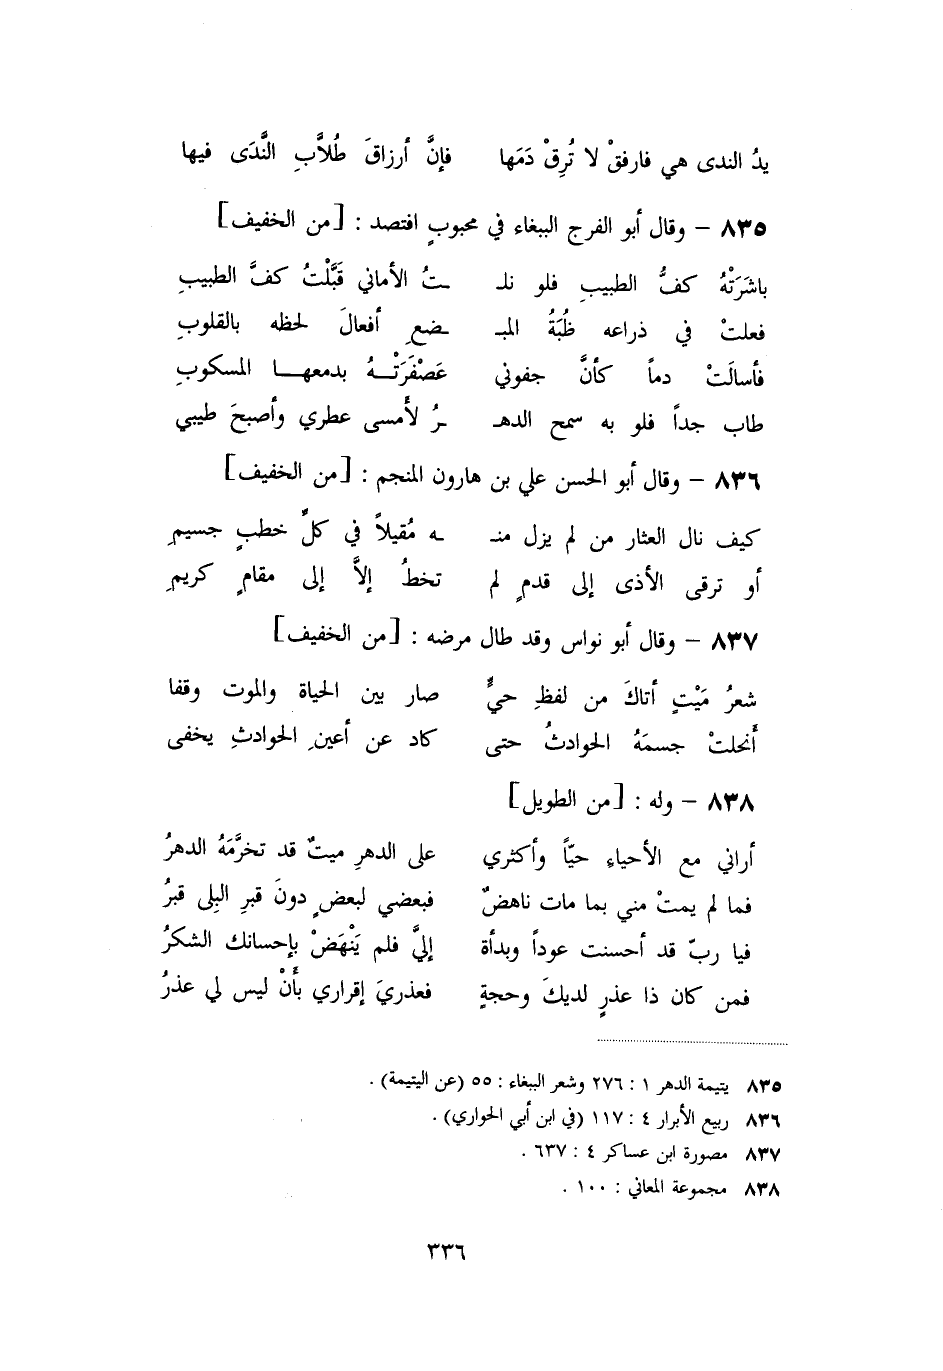 يدُ الندى هي فارفقْ لا تُرِقْ دَمَها فإنَّ أرزاقَ طُلاَّبِ النَّدَى فيها
٨٣٥ – وقال أبو الفرج الببغاء في محبوبٍ افتصد : [من الخفيف]
باشَرَتْهُ كفُّ الطبيبِ فلو نلـ ـتُ الأماني قَبَّلْتُ كفَّ الطبيبِ
فعلتْ في ذراعه ظُبَةُ المبـ ـضعِ أفعالَ لحظه بالقلوبِ
فأسالَتْ دماً كأنَّ جفوني عَصْفَرَتْـهُ بدمعهـا المسكوبِ
طاب جداً فلو به سمح الدهـ ـرُ لأمسى عطري وأصبحَ طيبي
٨٣٦ – وقال أبو الحسن علي بن هارون المنجم : [من الخفيف]
كيف نال العثار من لم يزل منـ ـه مُقيلاً في كلِّ خطبٍ جسيمِ
أو ترقى الأذى إلى قدمٍ لم تخطُ إلاَّ إلى مقامٍ كريمِ
٨٣٧ – وقال أبو نواس وقد طال مرضه : [من الخفيف]
شعرُ مَيْتٍ أتاكَ من لفظِ حيٍّ صار بين الحياة والموت وقفا
أَنحلتْ جسمَهُ الحوادثُ حتى كاد عن أعينِ الحوادثِ يخفى
٨٣٨ – وله : [من الطويل]
أراني مع الأحياءِ حيّاً وأكثري على الدهرِ ميتٌ قد تخرَّمَهُ الدهرُ
فما لم يمتْ مني بما مات ناهضٌ فبعضي لبعضٍ دونَ قبرِ البِلى قبرُ
فيا ربّ قد أحسنت عوداً وبدأة إليَّ فلم يَنْهَضْ بإحسانك الشكرُ
فمن كان ذا عذرٍ لديكَ وحجةٍ فعذريَ إقراري بأَنْ ليس لي عذرُ
٨٣٥ يتيمة الدهر ١ : ٢٧٦ وشعر الببغاء : ٥٥ (عن اليتيمة) .
٨٣٦ ربيع الأبرار ٤ : ١١٧ (في ابن أبي الحواري) .
٨٣٧ مصورة ابن عساكر ٤ : ٦٣٧ .
٨٣٨ مجموعة المعاني : ١٠٠ .
٣٣٦